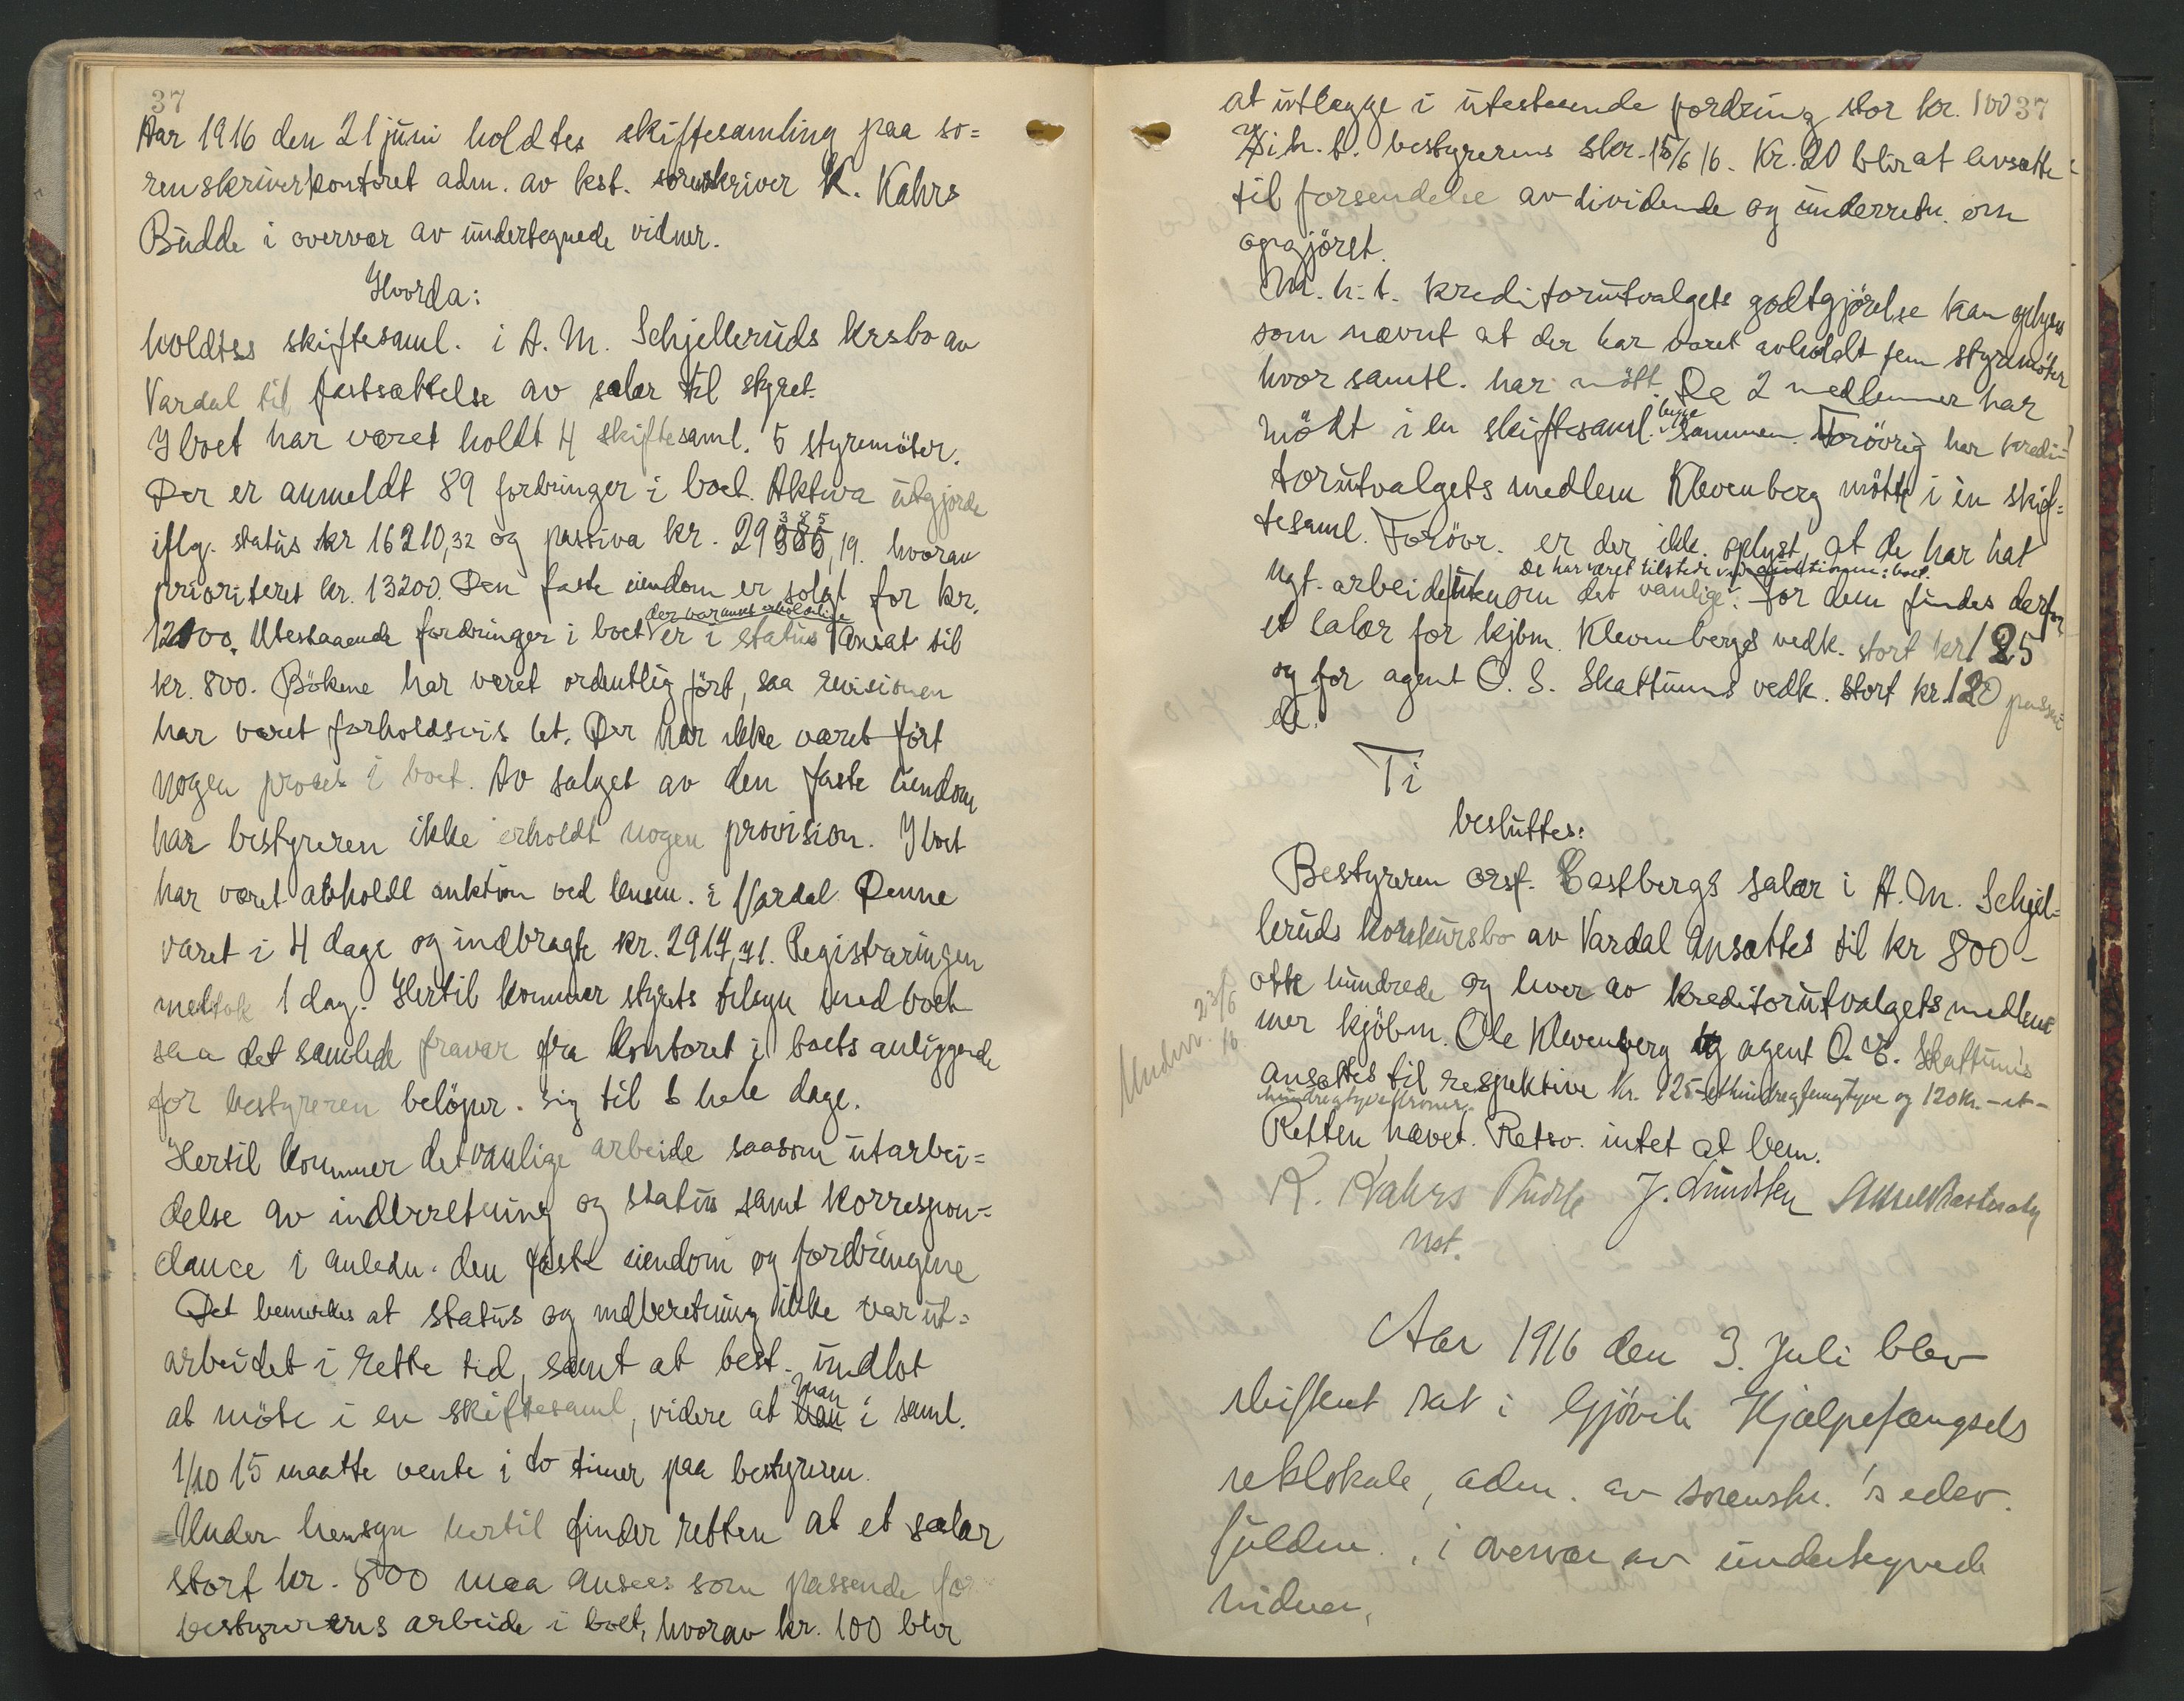 37
Aar 1916 den 21 juni holdtes skiftesamling paa so=
renskriverkontoret adm. av kst. sorenskriver K. Kahrs
Budde i overvær av undertegnede vidner.
Hvorda:
holdtes skiftesaml. i A. M. Schjelleruds krsbo av
Vardal til fastsættelse av salær til styret.
I boet har været holdt 4 skiftesaml. 5 styremöter.
Der er anmeldt 89 fordringer i boet. Aktiva utgjorde
iflg. status kr 16210,32 og passiva kr. 29385,19. hvorav
prioriteret kr. 13200. Den faste eiendom er solgt for kr.
der var uerholdelige
12000. Utestaaende fordringer i boet er i status ansat til
kr. 800. Bökene har været ordentlig fört, saa revisionen
har været forholdsvis let. Der har ikke været fört
nogen proces i boet. Av salget av den faste eiendom
har bestyreren ikke erholdt nogen provision. I boet
har været avholdt auktion ved lensm. i Vardal. Denne
varet i 4 dage og indbragte kr. 2914,71. Registreringen
medtok 1 dag. Hertil kommer styrets tilsyn med boet
saa det samlede fravær fra kontoret i boets anliggende
for bestyreren belöper sig til 6 hele dage.
Hertil kommer det vanlige arbeide saasom utarbei=
delse av indberetning og status samt korrespon=
dance i anledn. den faste eiendom og fordringene
Det bemerkes at status og indberetning ikke var ut=
arbeidet i rette tid, samt at best. undlot
man
at möte i en skiftesaml, videre at i saml.
1/10 15 maatte vente i to timer paa bestyreren.
Under hensyn hertil finder retten at et salær
stort kr. 800 maa ansees som passende for
bestyrerens arbeide i boet, hvorav kr. 100 blir
37
at utlægge i utestaaende fordring stor kr. 100
i h. t. bestyrerens skr. 15/6 16. Kr. 20 blir at avsætte
til forsendelse av dividende og underretn. om
opgjöret.
M. h. t. kreditorutvalgets godtgjörelse kan oplyses
som nævnt at der har været avholdt fem styremöter
hvor samtl. har mött. De 2 medlemmer har
begge
mödt i en skiftesaml. sammen. Forövrig har kredi=
torutvalgets medlem Klevenberg mött i èn skif=
tesaml. Forövr. er der ikk. oplyst, at de har hat
De har været tilstede ved auktionen i boet.
ngt. arbeide utenom det vanlige. For dem findes derfor
et salær for kjbm. Klevenbergs vedk. stort kr 125
og for agent O. S. Skattums vedk. stort kr. 120 passen=
de.
Ti
besluttes:
Bestyreren orsf. Castbergs salær i A. M. Schjel=
leruds konkursbo av Vardal ansættes til kr 800 -
otte hundrede og hver av kreditorutvalgets medlem=
mer kjöbm. Ole Klevenberg og agent O. S. Skattums
ansættes til respektive kr. 125 - ethundregfemogtyve og 120 kr. - et -
hundregtyvekroner.
Retten hævet. Retsv. intet at bem.
Underr. 23/6 16
K. Kahrs Budde J. Lundsten
kst.
Aar 1916 den 3. Juli blev
skifteret sat i Gjövik Hjælpefængsels
retslokale, adm. av sorenskr. 's edsv.
fuldm. , i overvær av undertegnede
vidner,